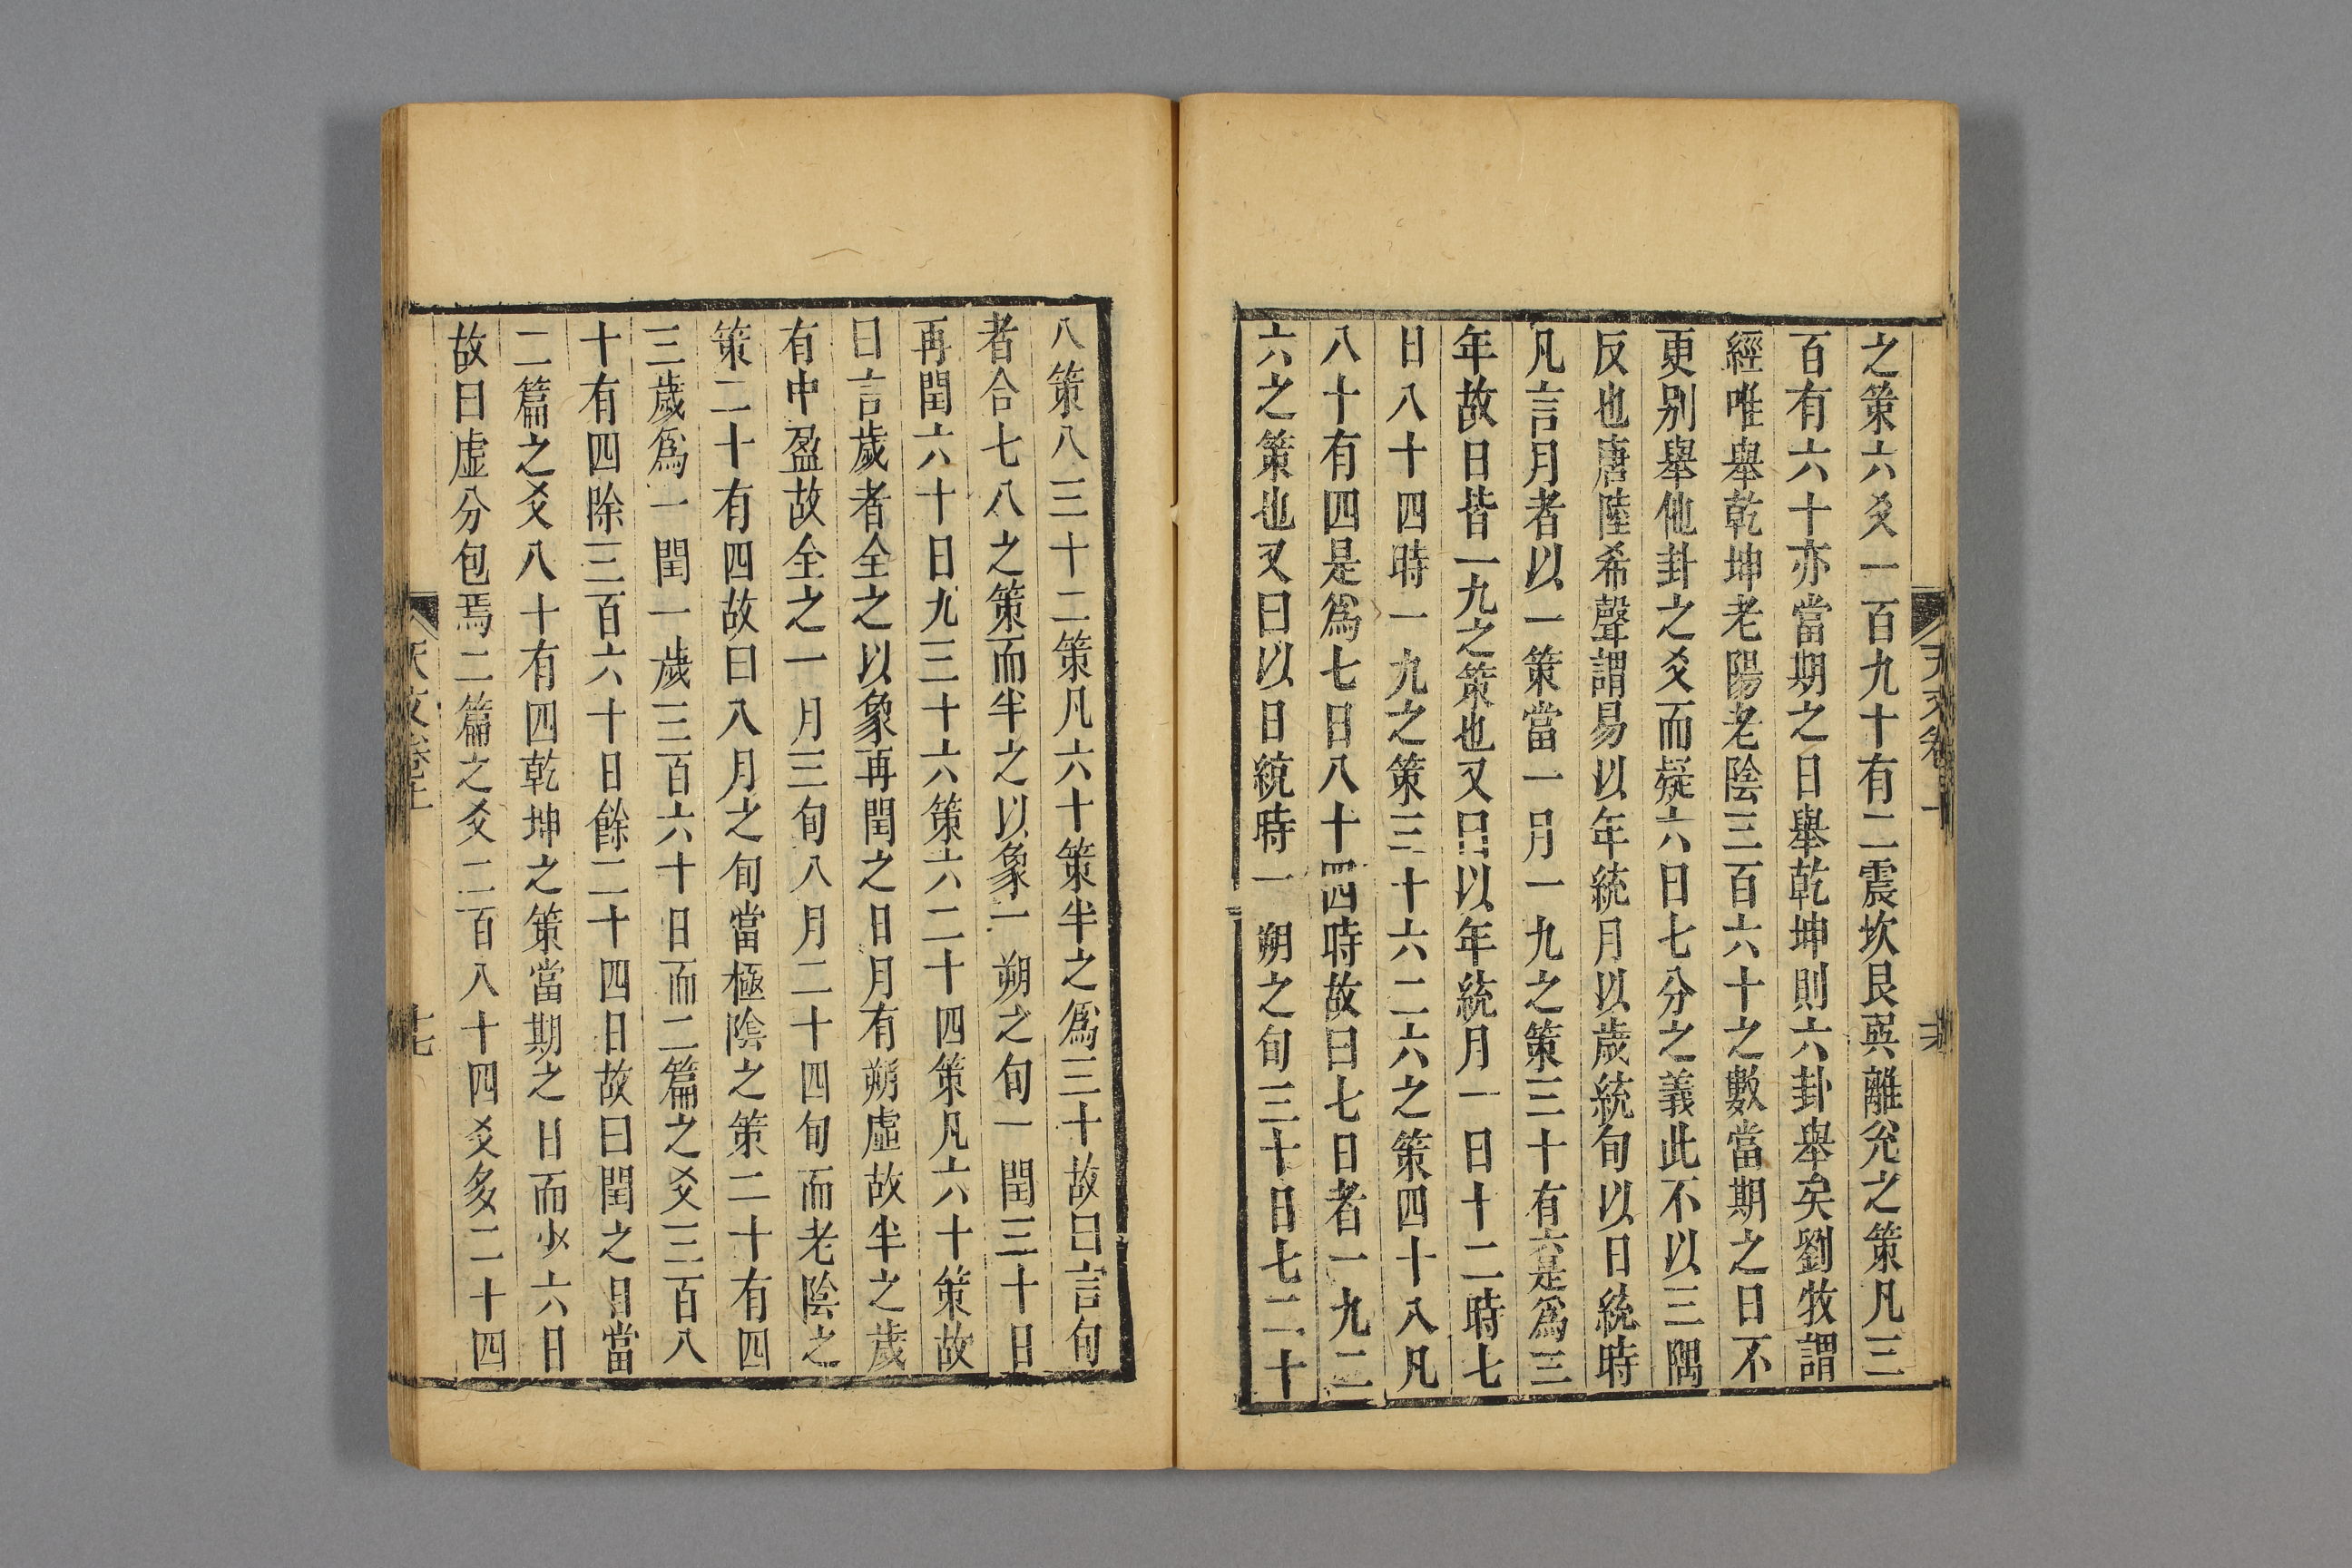 之策六爻一百九十有二震坎艮巽離兌之策凡三
百有六十亦當期之日舉乾坤則六卦舉矣劉牧謂
經唯舉乾坤老陽老陰三百六十之數當期之日不
更別舉他卦之爻而疑六日七分之義此不以三隅
反也唐陸希聲謂易以年統月以歲統旬以日統時
凡言月者以一策當一月一九之策三十有六是爲三
年故日皆一九之策也又曰以年統月一日十二時七
日八十四時一九之策三十六二六之策四十八凡
八十有四是爲七日八十四時故曰七日者一九二
六之策也又曰以日統時一朔之旬三十日七二十
八策八三十二策凡六十策半之爲三十故曰言旬
者合七八之策而半之以象一朔之旬一閏三十日
再閏六十日九三十六策六二十四策凡六十策故
曰言歲者全之以象再閏之日月有朔虛故半之歲
有中盈故全之一月三旬八月二十四旬而老陰之
策二十有四故曰八月之旬當極陰之策二十有四
三歲爲一閏一歲三百六十日而二篇之爻三百八
十有四除三百六十日餘二十四日故曰閏之日當
二篇之爻八十有四乾坤之策當期之日而少六日
故曰虛分包焉二篇之爻二百八十四爻多二十四